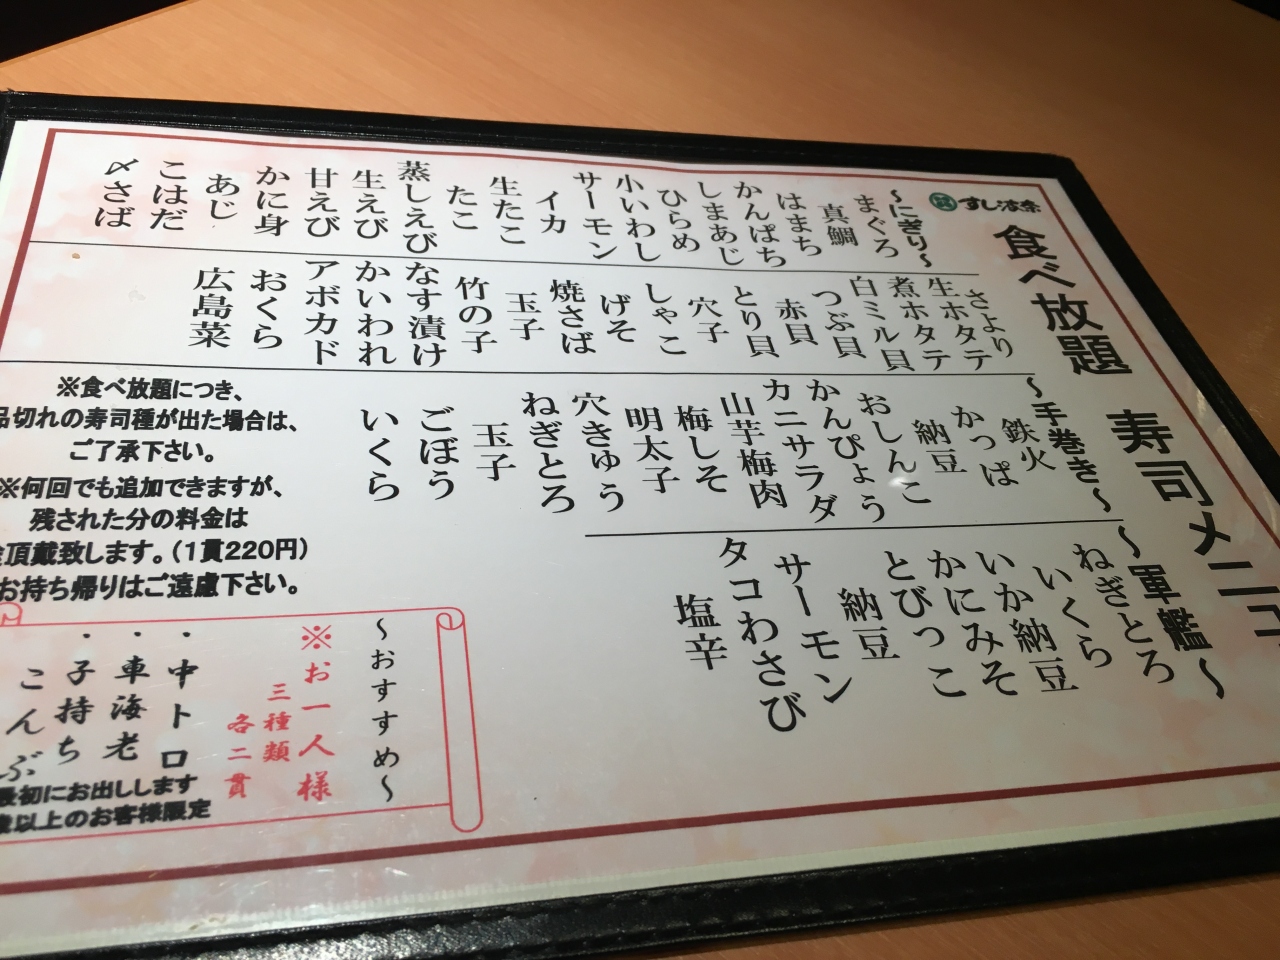 すし波奈
食べ放題 寿司メニュ
～にぎり～
まぐろ
真鯛
はまち
かんぱち
しまあじ
ひらめ
小いわし
サーモン
イカ
生たこ
たこ
蒸しえび
生えび
甘えび
かに身
あじ
こはだ
〆さば
さより
生ホタテ
煮ホタテ
白ミル貝
つぶ貝
赤貝
とり貝
穴子
しゃこ
げそ
焼さば
玉子
竹の子
なす漬け
かいわれ
アボカド
おくら
広島菜
～手巻き～
鉄火
かっぱ
納豆
おしんこ
かんぴょう
カニサラダ
山芋梅肉
梅しそ
明太子
穴きゅう
ねぎとろ
玉子
ごぼう
いくら
～軍艦～
ねぎとろ
いくら
いか納豆
かにみそ
とびっこ
納豆
サーモン
タコわさび
塩辛
※食べ放題につき、
品切れの寿司種が出た場合は、
ご了承下さい。
※何回でも追加できますが、
残された分の料金は
頂戴致します。（1貫220円）
お持ち帰りはご遠慮下さい。
～おすすめ～
※お一人様
三種類
各二貫
・中トロ
・車海老
・子持ち
こんぶ
最初にお出しします
歳以上のお客様限定